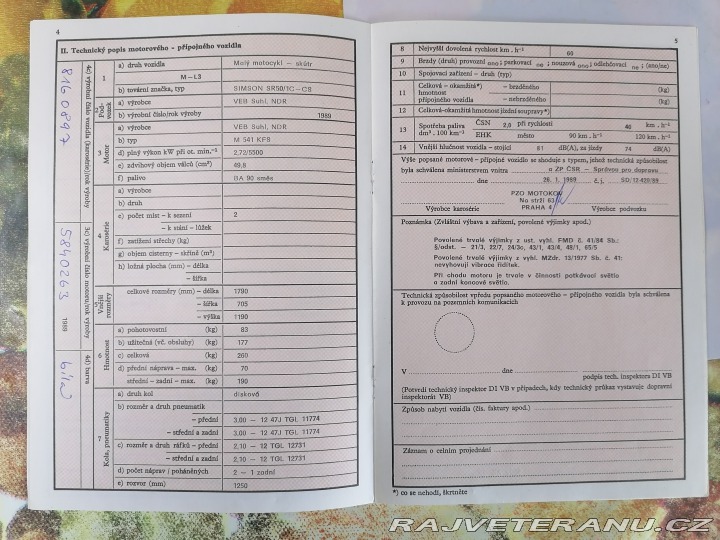 4
II. Technický popis motorového – přípojného vozidla
4c) výrobní číslo vozidla (karosérie)/rok výroby
8160897
3c) výrobní číslo motoru/rok výroby
5840263 1989
4d) barva
bílá
1
a) druh vozidla Malý motocykl – skútr
M – L3
b) tovární značka, typ SIMSON SR50/1C –CS
2 Podvozek
a) výrobce VEB Suhl, NDR
b) výrobní číslo/rok výroby 1989
3 Motor
a) výrobce VEB Suhl, NDR
b) typ M 541 KFS
d) plný výkon kW při ot. min.⁻¹ 2,72/5500
e) zdvihový objem válců (cm³) 49,8
f) palivo BA 90 směs
4 Karosérie
a) výrobce
b) druh
e) počet míst – k sezení 2
– k stání – lůžek
f) zatížení střechy (kg)
g) objem cisterny – skříně (m³)
h) ložná plocha (mm) – délka
– šířka
5 Vnější rozměry
celkové rozměry (mm) – délka 1790
– šířka 705
– výška 1190
6 Hmotnost
a) pohotovostní (kg) 83
b) užitečná (vč. obsluhy) (kg) 177
c) celková (kg) 260
d) přední náprava – max. (kg) 70
střední – zadní – max. (kg) 190
7 Kola, pneumatiky
a) druh kol disková
b) rozměr a druh pneumatik
– přední 3,00 – 12 47J TGL 11774
– střední a zadní 3,00 – 12 47J TGL 11774
c) rozměr a druh ráfků – přední 2,10 – 12 TGL 12731
– střední a zadní 2,10 – 12 TGL 12731
d) počet náprav / poháněných 2 – 1 zadní
e) rozvor (mm) 1250
5
8 Nejvyšší dovolená rychlost km . h⁻¹ 60
9 Brzdy (druh) provozní ano; parkovací ne; nouzová ano; odlehčovací ne; (ano/ne)
10 Spojovací zařízení – druh (typ)
11 Celková-okamžitá*) – brzděného (kg)
hmotnost
přípojného vozidla – nebrzděného (kg)
12 Celková-okamžitá hmotnost jízdní soupravy*)
13 Spotřeba paliva ČSN 2,0 při rychlosti 40 km . h⁻¹
dm³ . 100 km⁻¹ EHK město 90 km . h⁻¹ 120 km . h⁻¹
14 Vnější hlučnost vozidla – stojící 81 dB(A), za jízdy 74 dB(A)
Výše popsané motorové – přípojné vozidlo se shoduje s typem, jehož technická způsobilost
byla schválena ministerstvem vnitra a ZP ČSR – Správou pro dopravu
dne 26. 1. 1989 č. j. SD/12-429/89
PZO MOTOKOV
Na strži 63
PRAHA 4
Výrobce karosérie Výrobce podvozku
Poznámka (Zvláštní výbava a zařízení, povolené výjimky apod.)
Povolené trvalé výjimky z ust. vyhl. FMD č. 41/84 Sb.:
§/odst. – 21/3, 22/7, 24/3c, 43/1, 43/4, 48/1, 65/5
Povolené trvalé výjimky z vyhl. MZdr. 13/1977 Sb. č. 41:
nevyhovují vibrace řidítek.
Při chodu motoru je trvale v činnosti potkávací světlo
a zadní koncové světlo.
Technická způsobilost vpředu popsaného motorového – přípojného vozidla byla schválena
k provozu na pozemních komunikacích
V dne
podpis tech. inspektora DI VB
(Potvrdí technický inspektor DI VB v případech, kdy technický průkaz vystavuje dopravní
inspektorát VB)
Způsob nabytí vozidla (čís. faktury apod.)
Záznam o celním projednání
*) co se nehodí, škrtněte
RAJVETERANU.CZ